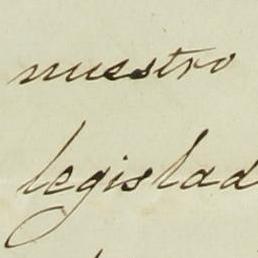 nuestro
legislad